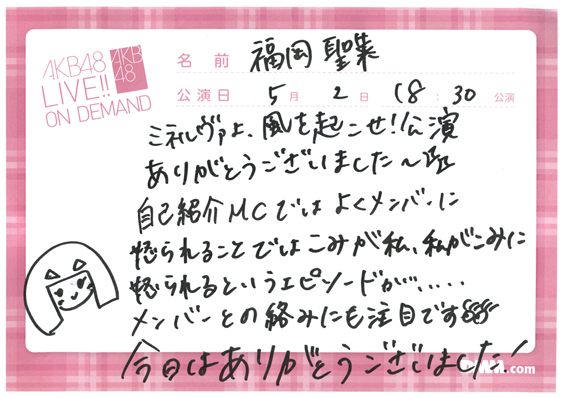 AKB48
LIVE!!
ON DEMAND
AKB
48
名前 福岡 聖菜
公演日 5月 2日 18:30 公演
ミネルヴァよ、風を起こせ!公演
ありがとうございました〜
自己紹介MCではよくメンバーに
怒られることではこみが私、私がこみに
怒られるというエピソードが、、、、、
メンバーとの絡みにも注目です
今日はありがとうございました!
DMM.com